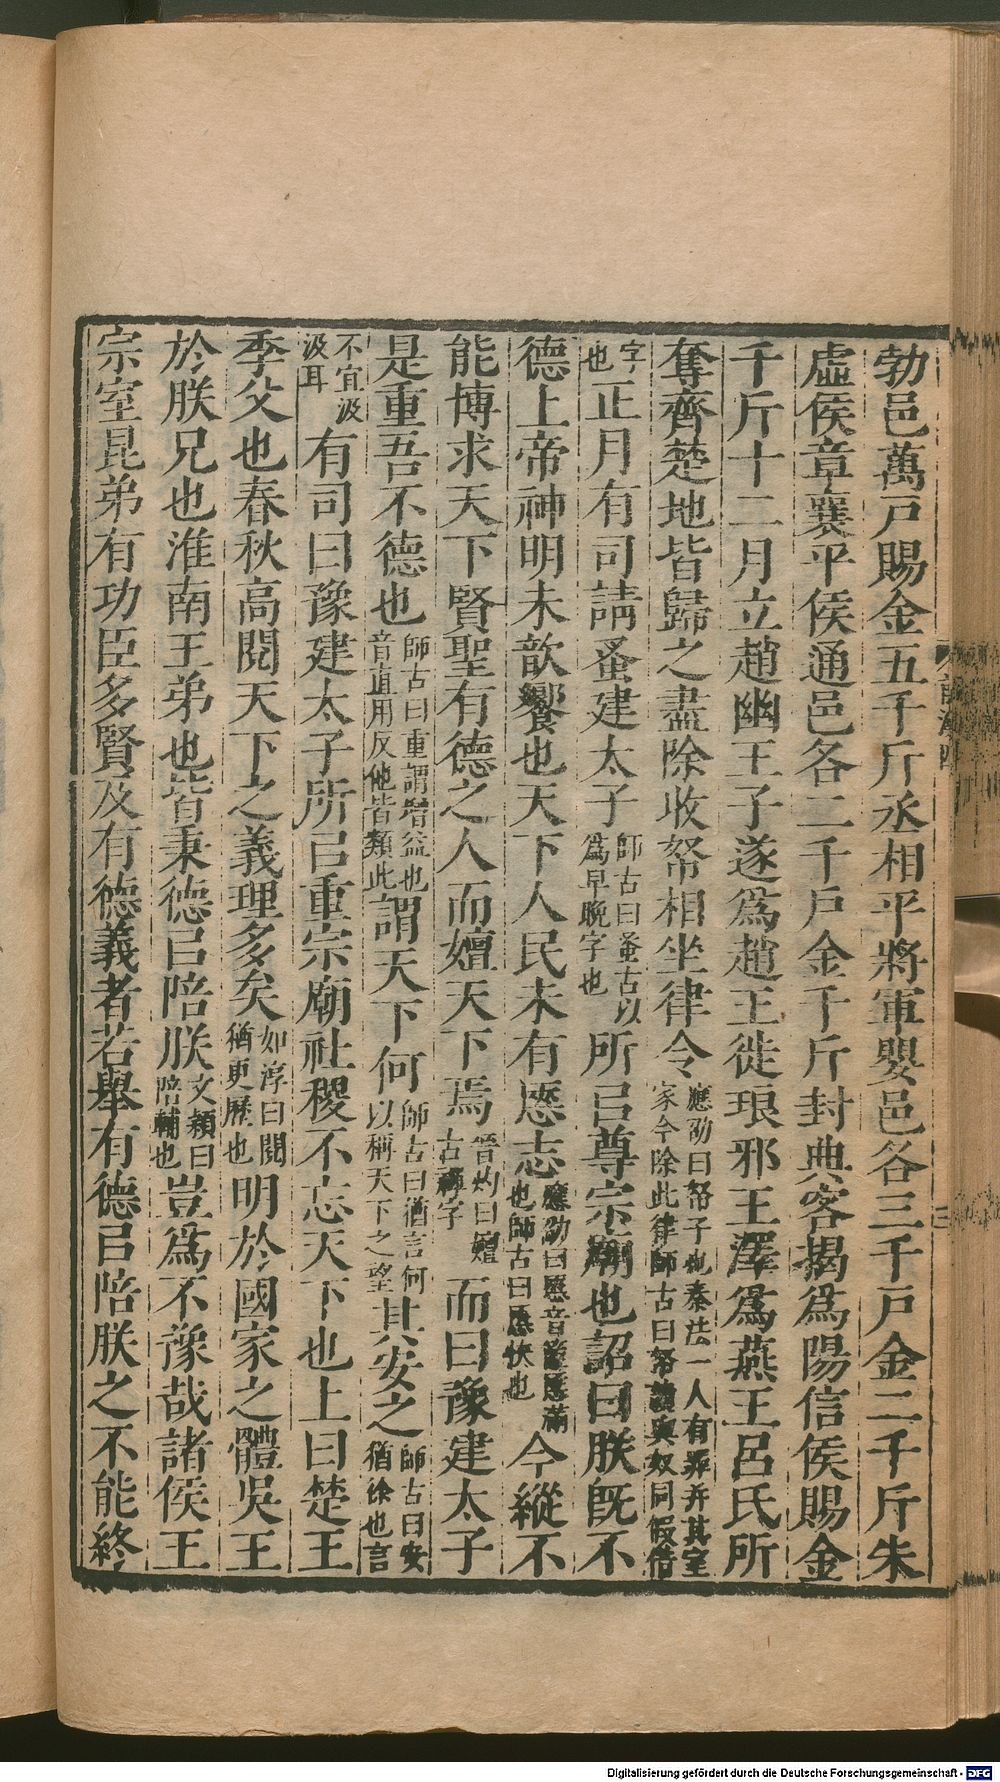 勃邑萬戸賜金五千斤丞相平將軍嬰邑各三千戸金二千斤朱
虛侯章襄平侯通邑各二千戸金千斤封典客揭爲陽信侯賜金
千斤十二月立趙幽王子遂爲趙王徙琅邪王澤爲燕王呂氏所
奪齊楚地皆歸之盡除收帑相坐律令應劭曰帑子也秦法一人有罪并其室家今除此律師古曰帑讀與奴同假借
字也正月有司請蚤建太子師古曰蚤古以爲早晚字也所㠯尊宗廟也詔曰朕旣不
德上帝神明未歆饗也天下人民未有㥦志應劭曰㥦音篋㥦滿也師古曰㥦快也今縱不
能博求天下賢聖有德之人而嬗天下焉晉灼曰嬗古禪字而曰豫建太子
是重吾不德也師古曰重謂增益也音直用反他皆類此謂天下何師古曰猶言何以稱天下之望其安之師古曰安猶徐也言
不宜汲汲耳有司曰豫建太子所㠯重宗廟社稷不忘天下也上曰楚王
季父也春秋高閱天下之義理多矣如淳曰閱猶更歷也明於國家之體吳王
於朕兄也淮南王弟也皆秉德㠯陪朕文穎曰陪輔也豈爲不豫哉諸侯王
宗室昆弟有功臣多賢及有德義者若舉有德㠯陪朕之不能終
前漢四
三
Digitalisierung gefördert durch die Deutsche Forschungsgemeinschaft - DFG